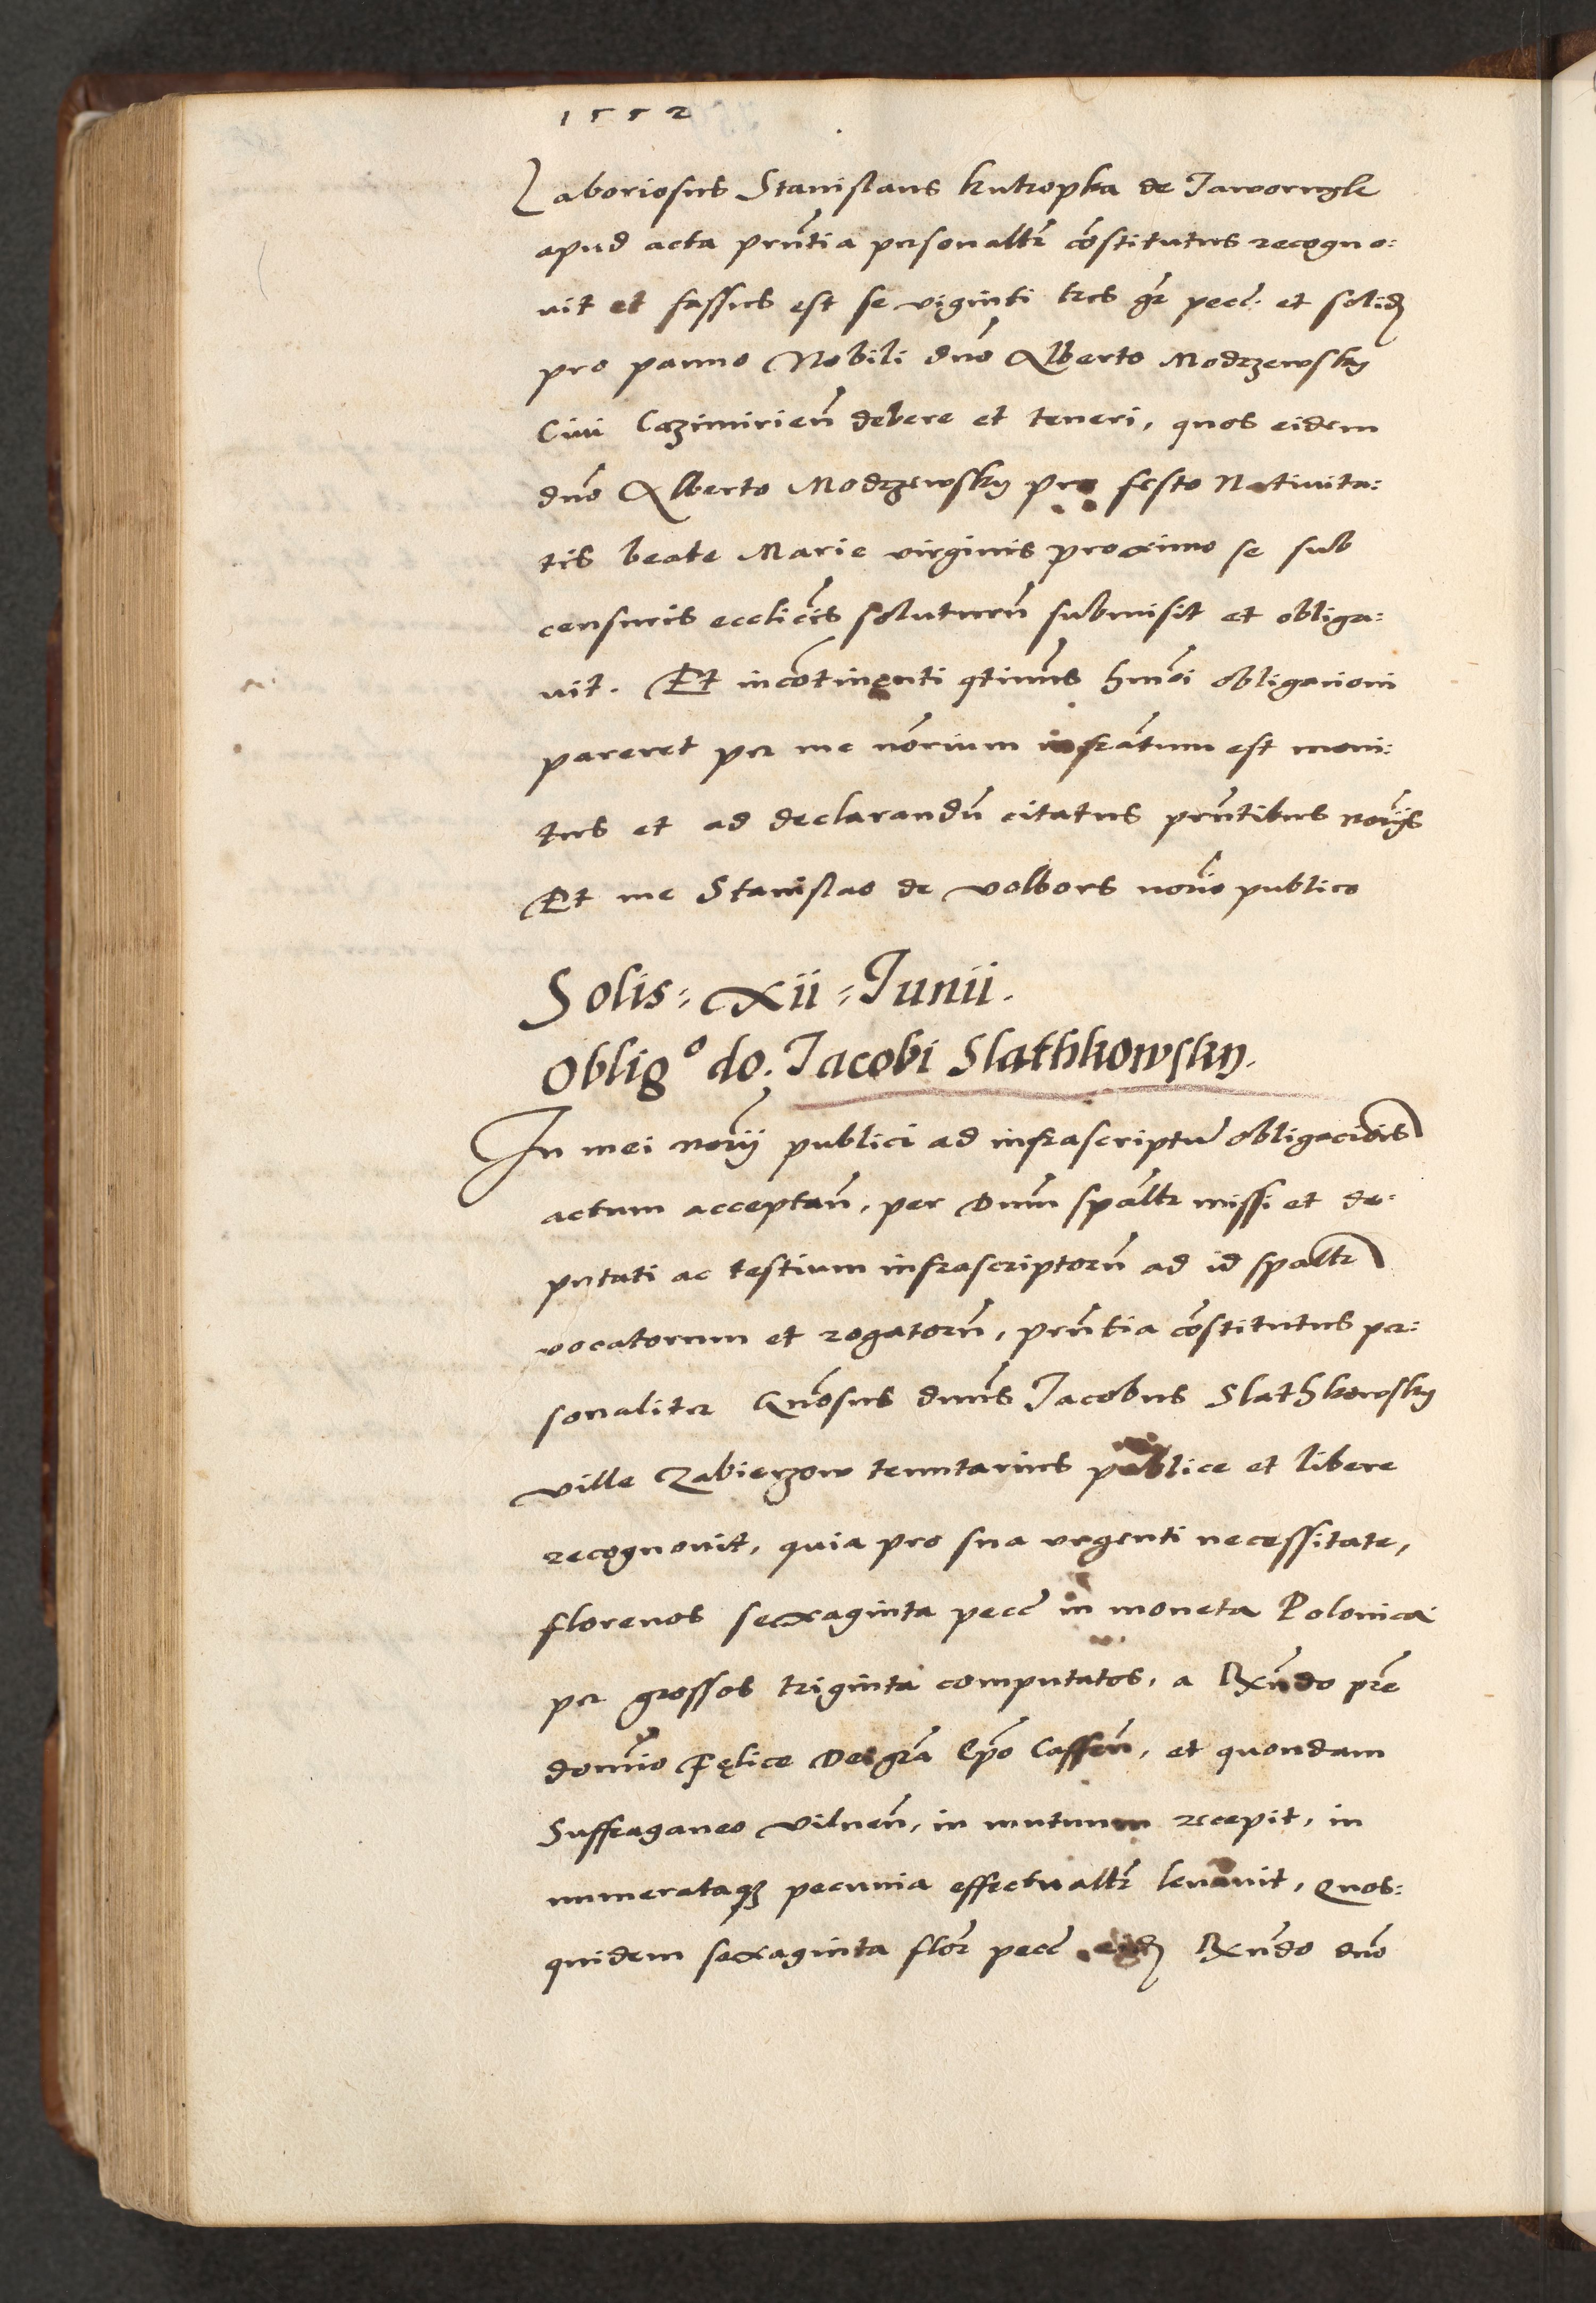 1552
Laboriosus Stanislaus kutropka de Jaworngk
apud acta prñtia personalr̃ cõstitutus recogno:
uit et fassus est se viginti tres gr̃ pecc̃ et solid
pro panno Nobili dnõ Alberto Modrzewsky
Ciui Cazimirień debere et teneri, quos eidem
dnõ Alberto Modrzewsky pro festo Natiuita:
tis beate Marie virginis proximo se sub
censuris ecclic̃is soluturũ submisit et obliga:
uit. Et incõtinenti qtinus hmõi obligacioni
pareret per me nõrium infrãtum est moni:
tus et ad declarandũ citatus prñtibus norijs
Et me Stanislao de volbors norio publico
Solis: xii Junii.
Obligº do. Jacobi Slathkowsky.
In mei norij publici ad infrascriptũ obligaciõis
actum acceptań, per Dnum spãltr missi et de:
putati ac testium infrascriptorũ ad id spãltr
vocatorum et rogatorũ, prñtia cõstitutus per:
sonaliter Gnõsus dnus Jacobus Slathkowsky
ville Zabierzow tenutarius publice et libere
recognouit, quia pro sua urgenti necessitate,
florenos sexaginta pecc̃ in moneta Polonica
per grossos triginta computatos, a Rxñdo pre
domĩo Felice Dei grã Epõ Caffeñ, et quondam
Suffraganeo vilneñ, in mutuum recepit, in
numerataqȝ pecunia effectualr̃ leuauit, Quos:
quidem sexaginta flor̃ pecc̃ eid Rxñdo dnõ